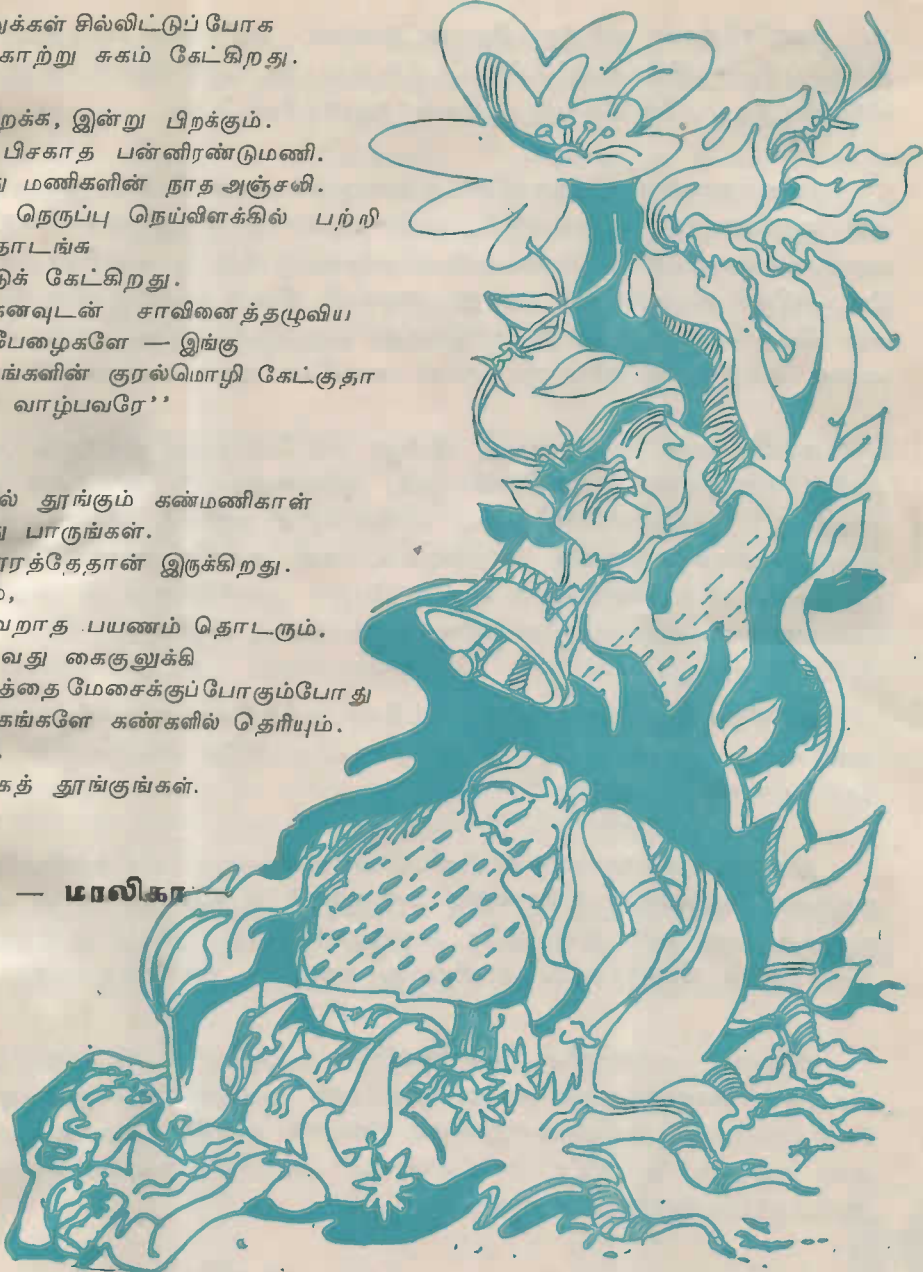 ுக்கள் சில்லிட்டுப் போக
காற்று சுகம் கேட்கிறது.
றக்க, இன்று பிறக்கும்.
பிசகாத பன்னிரண்டுமணி.
து மணிகளின் நாத அஞ்சலி.
நெருப்பு நெய்விளக்கில் பற்றி
தாடங்க
டுக் கேட்கிறது.
கனவுடன் சாவினைத்தழுவிய
பேழைகளே — இங்கு
ங்களின் குரல்மொழி கேட்குதா
வாழ்பவரே’’
ல் தூங்கும் கண்மணிகாள்
து பாருங்கள்.
ரத்தேதான் இருக்கிறது.
வறாத பயணம் தொடரும்.
வது கைகுலுக்கி
த்தை மேசைக்குப்போகும்போது
கங்களே கண்களில் தெரியும்.
கத் தூங்குங்கள்.
— மாலிகா —